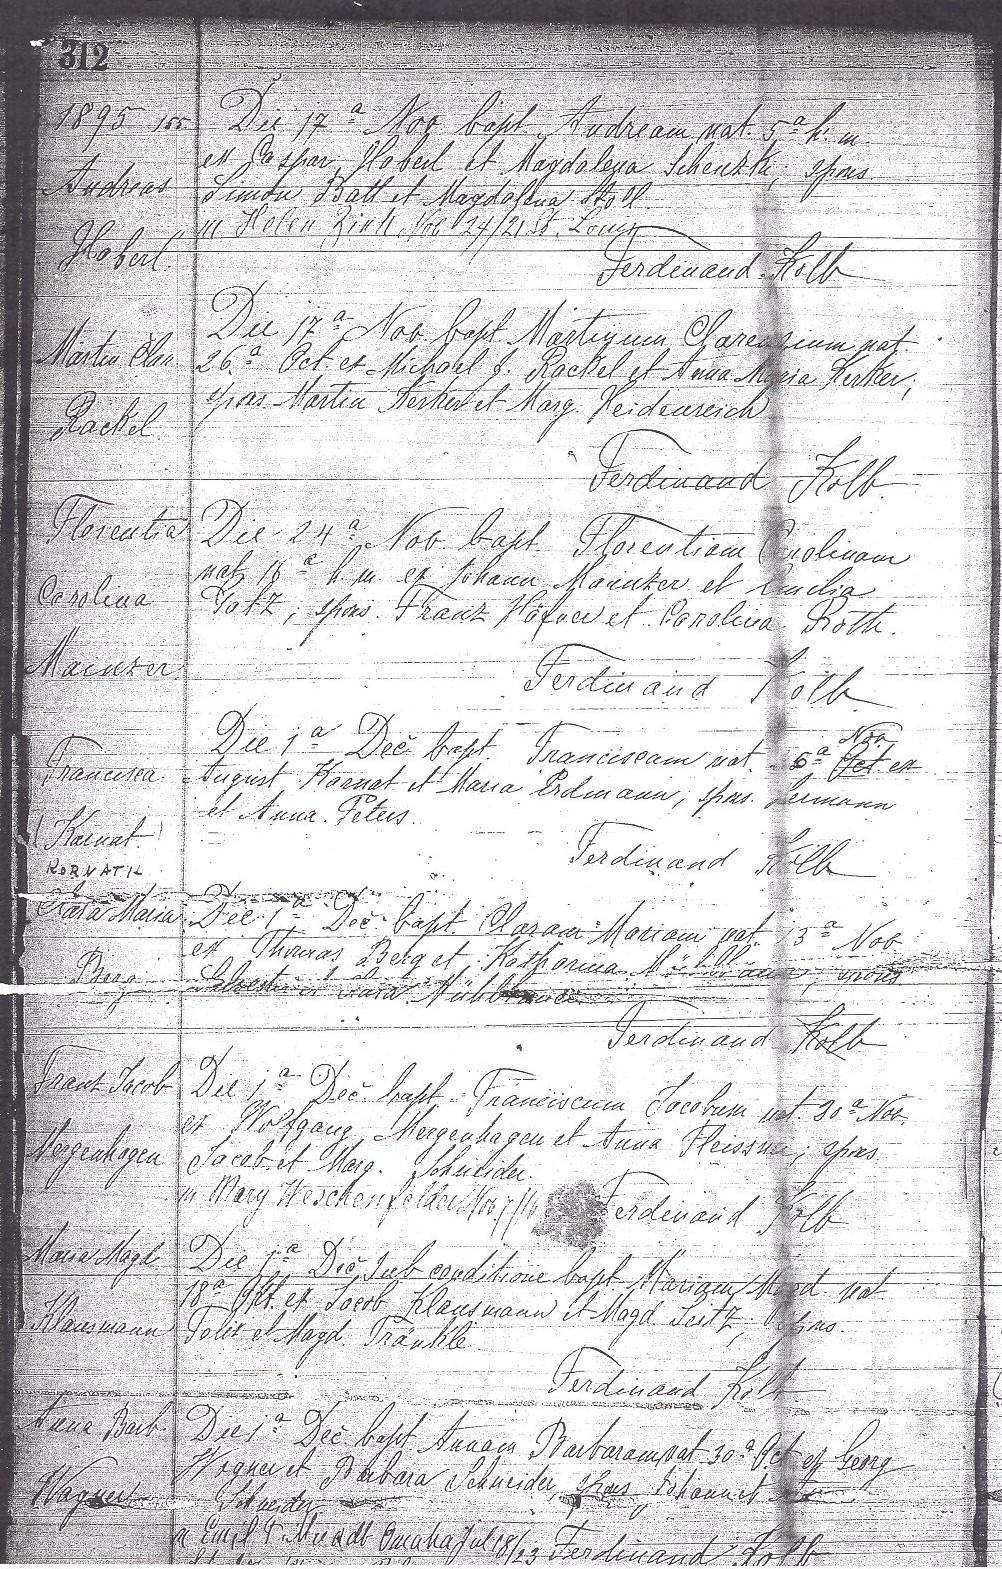 312
1895 155 Die 17a Nov bapt Andream nat. 5a h. m.
ex Caspar Hoberl et Magdalena Schenzk; spons.
Andreas
Simon Batt et Magdalena Stoll
m Helen Zink Nov 24/21 St. Louis
Hoberl
Ferdinand Kolb
Die 17a Nov. bapt Martinum Clarensium nat.
Martin Clar. 26a Oct. ex Michael J. Rackel et Anna Maria Kerker;
spons Martin Kerker et Marg. Heidenreich
Rackel
Ferdinand Kolb
Florentia Die 24a Nov. bapt. Florentiam Carolinam
nat. 16a h. m. ex Johann Mainzer et Emilia
Carolina
Totz; spons. Franz et Carolina Roth.
Mainzer
Ferdinand Kolb
Die 1a Dec bapt Franciscam nat. 5a Nov. Oct ex
Francisca August Karnat et Maria Erdmann; spons. Hermann
et Anna Peters.
(Karnat)
KORNATH
Ferdinand Kolb
Clara Maria Die 1a Dec bapt Claram Mariam nat. 13a Nov
ex Thomas Berg et Katharina; spons
Berg
et Clara
Ferdinand Kolb
Franz Jacob Die 1a Dec bapt. Franciscum Jacobum nat. 30a Nov.
ex Wolfgang Mergenhagen et Anna Fleissner; spons
Mergenhagen
Jacob et Marg. Schneider.
m Mary Weschenfelder Nov 7/16 Ferdinand Kolb
Maria Magd Die 1a Dec sub conditione bapt Mariam Magd nat
18a Okt. ex Jacob Klausmann et Magd Seitz; spons
Klausmann
et Magd Frankle
Ferdinand Kolb
Anna Barb. Die 1a Dec bapt Annam Barbaram nat 30a Oct ex Georg
Wagner et Barbara Schneider, spons Johann et
Wagner
Schneider
m Emil Mundt Omaha Jul 18/23 Ferdinand Kolb